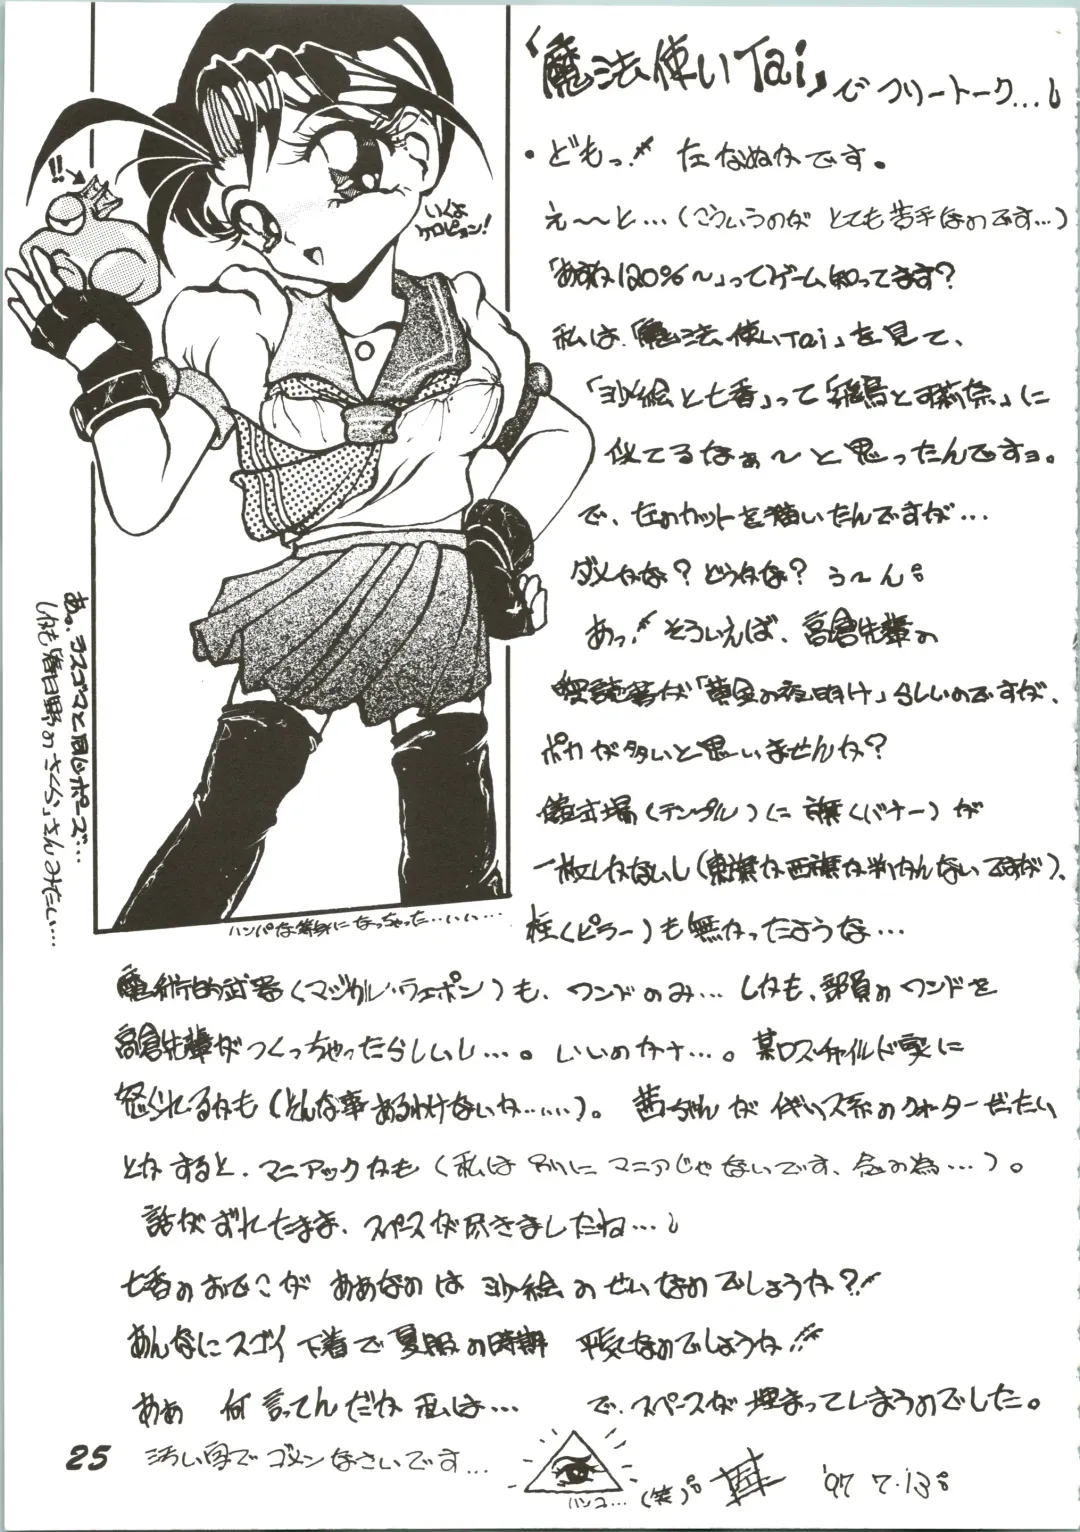 「魔法使いTai」でフリートーク…し
・どもっ!! 左 なぬかです。
え〜〜と…(こういうのが とても苦手なのです…)
「あすか120%〜」ってゲーム知ってます?
私は、「魔法使いTai」を見て、
「沙絵と七香」って「飛鳥と可莉奈」に
似てるなぁ〜と思ったんですョ。
で、左のカットを描いたんですが…
ダメかな? どうかな? う〜ん。
あっ! そういえば、高倉先輩の
愛読書が「黄金の夜明け」らしいのですが、
ボカが多いと思いませんか?
儀式場(テンプル)に 旗(バナー)が
一枚しかないし(東旗か西旗か判かんないですが)、
柱(ピラー)も無かったような…
魔術的武器(マジカル・ウェポン)も、ワンドのみ… しかも、部員のワンドを
高倉先輩がつくっちゃったらしいし…。いいのかナ…。某ロスチャイルド家に
怒られるかも(そんな事あるわけないか……)。 茜ちゃんがイギリス系のクォーターだったい
とかすると、マニアックかも(私は別にマニアじゃないです、念の為…)。
話がずれたまま、スペースが尽きましたね…し
七香のおでこが ああなのは 沙絵のせいなのでしょうか?!
あんなにスゴイ下着で夏服の時期 平気なのでしょうか!!
あぁ 何言ってんだか私は… で、スペースが埋まってしまうのでした。
汚い字でゴメンなさいです…
ハンコ… (笑)。 '97 7.13。
!!→
いくよ
ケロピョン!
あっ、ラスゴマと同じポーズ…
しかも「春日野のさくら」さんみたい…
ハンパな等身になっちゃった…いい…
25